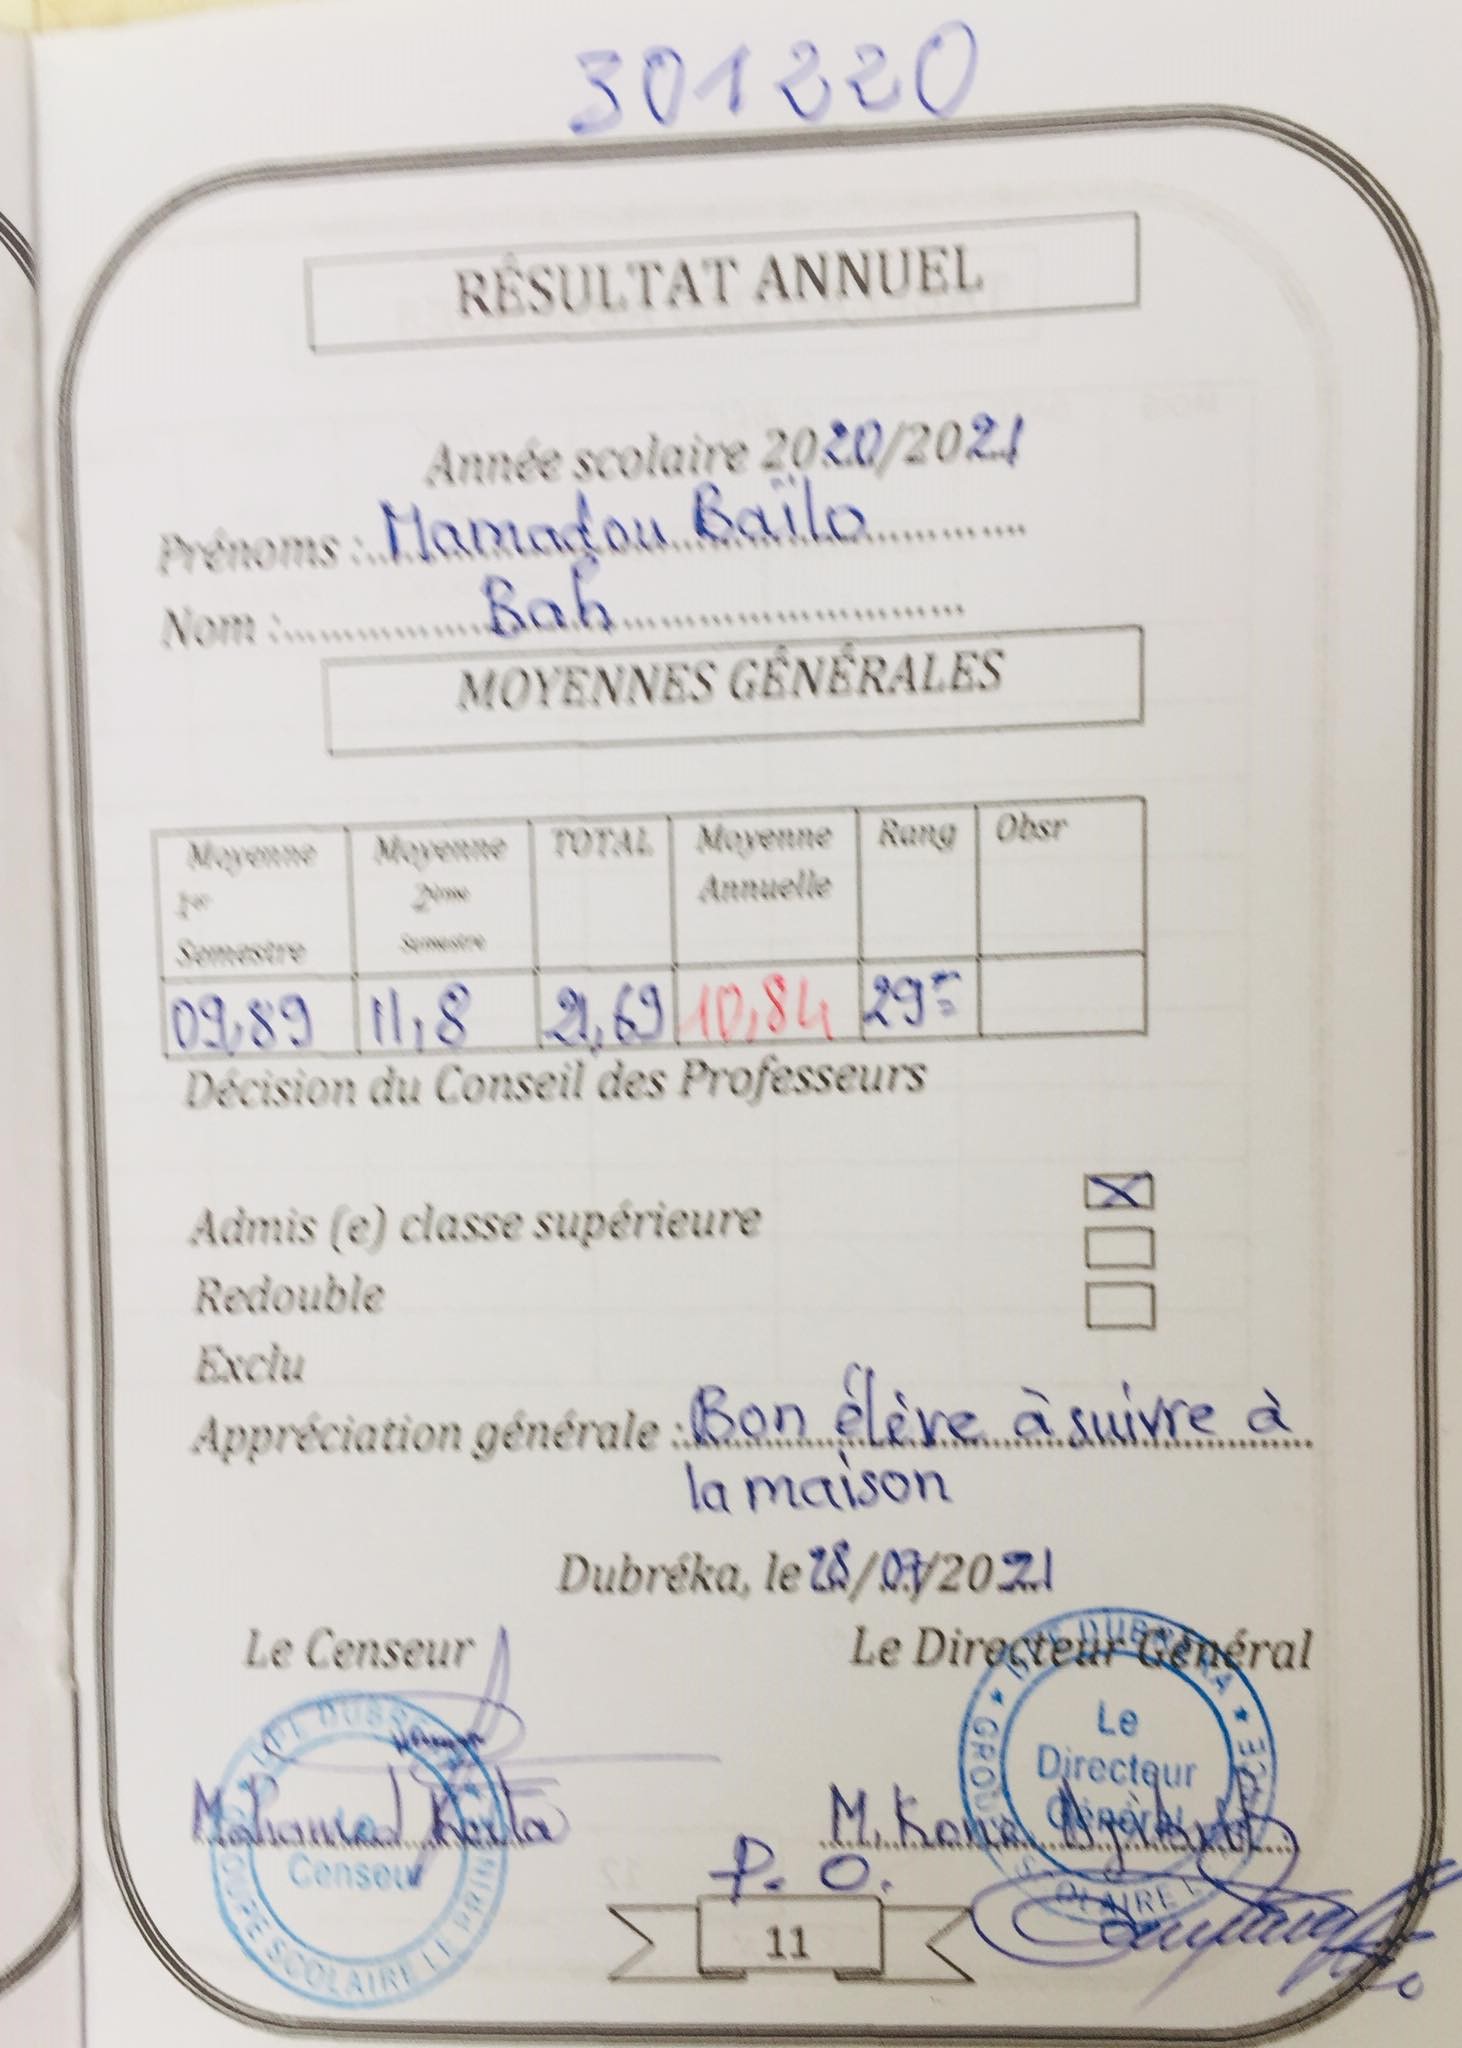 301220
RÉSULTAT ANNUEL
Année scolaire 2020/2021
Prénoms : Mamadou Baïlo
Nom : Bah
MOYENNES GÉNÉRALES
Moyenne 1er Semestre | Moyenne 2ème Semestre | TOTAL | Moyenne Annuelle | Rang | Obsr
09,89 | 11,8 | 21,69 | 10,84 | 29e
Décision du Conseil des Professeurs
Admis (e) classe supérieure
Redouble
Exclu
Appréciation générale : Bon élève à suivre à
la maison
Dubréka, le 28/07/2021
Le Censeur Le Directeur Général
Mohamed Keita M. Kone
P. O.
Le
Directeur
Général
Censeur
GROUPE SCOLAIRE LE PRIN
DUBREKA
11